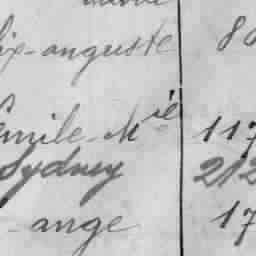 ix-auguste 8
Emile-Mie 117
Sydney 212
ange 17